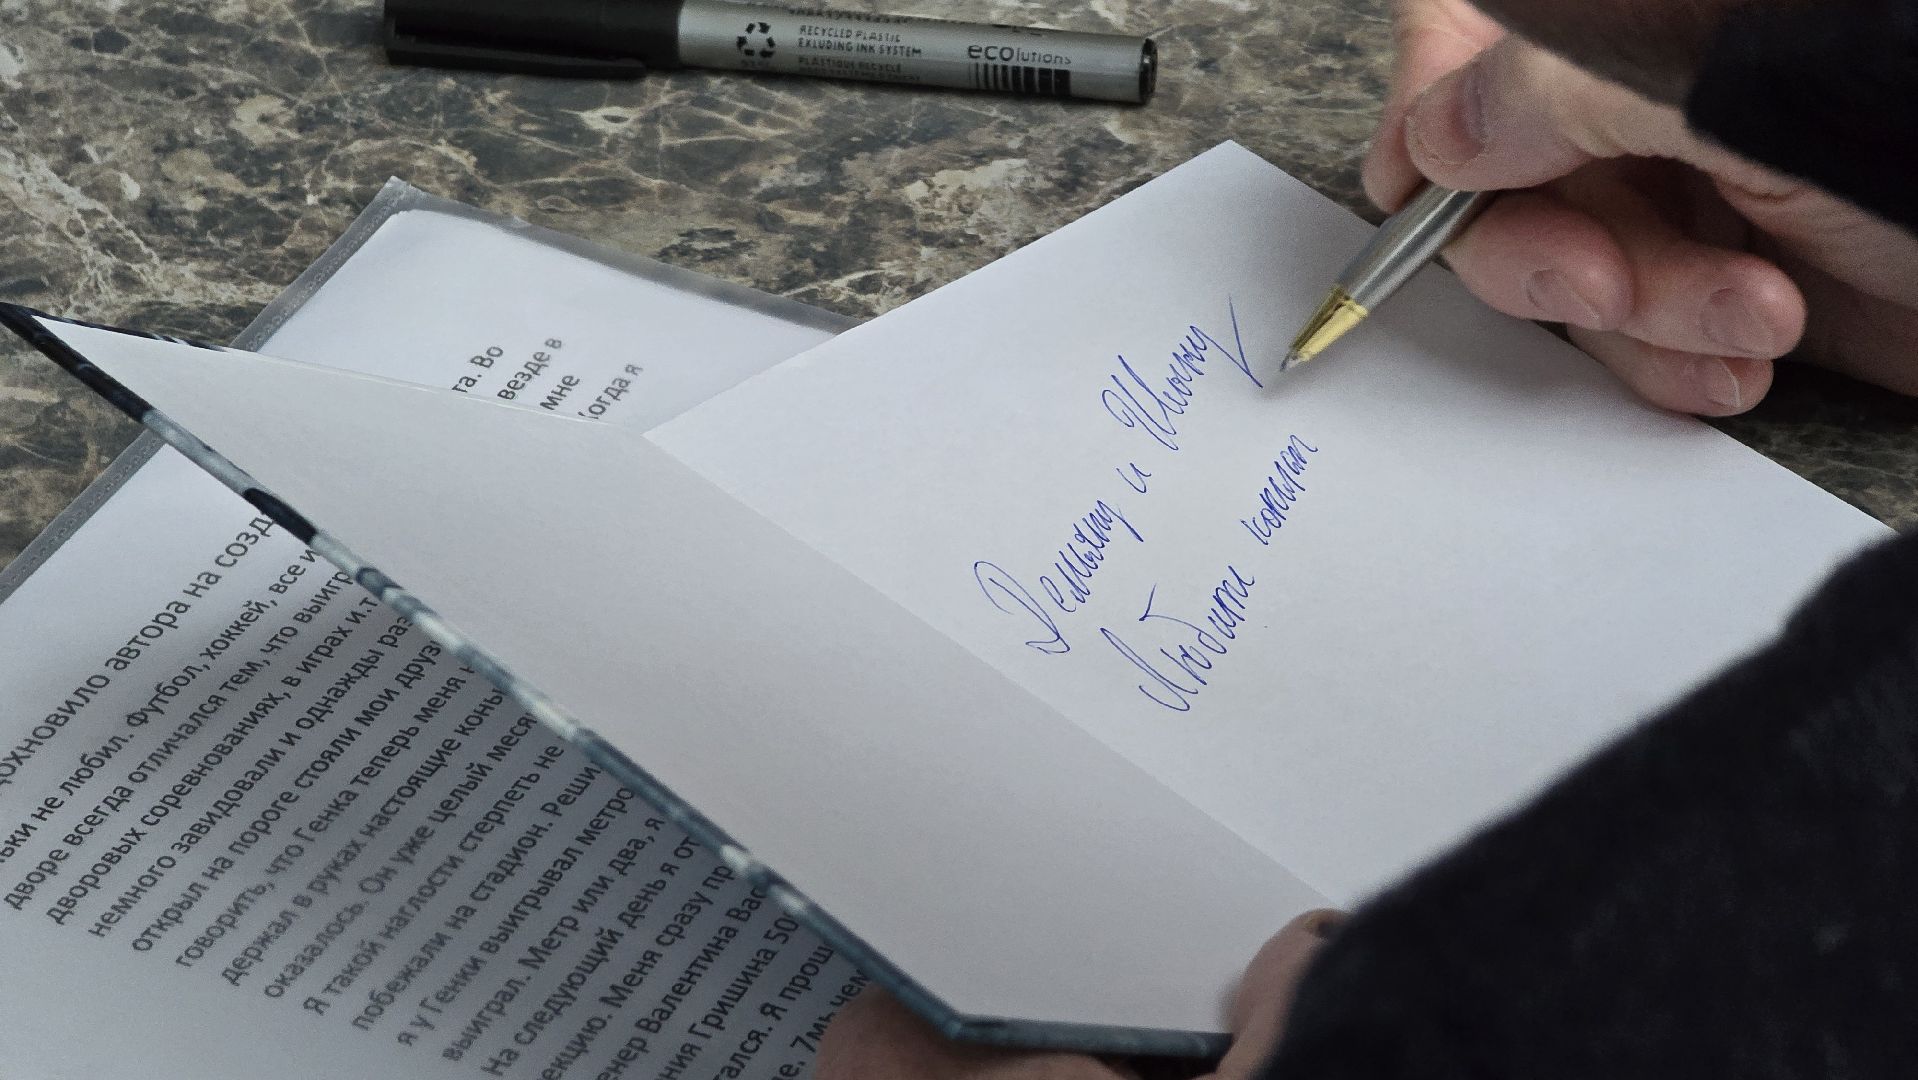 RECYCLED PLASTIC
EXLUDING INK SYSTEM
PLASTIQUE RECYCLÉ
ecolutions
та. Во
везде в
мне
Когда я
дохновило автора на созд
ьки не любил. Футбол, хоккей, все и
дворе всегда отличался тем, что выигр
дворовых соревнованиях, в играх и.т
немного завидовали и однажды раз
открыл на пороге стояли мои друз
говорить, что Генка теперь меня н
держал в руках настоящие конь
оказалось. Он уже целый меся
Я такой наглости стерпеть не
побежали на стадион. Реши
я у Генки выигрывал метро
выиграл. Метр или два, я
На следующий день я от
екцию. Меня сразу пр
енер Валентина Вас
ния Гришина 50
тался. Я прош
е. 7мь чем
Демьяну и Илону
Любити коньки